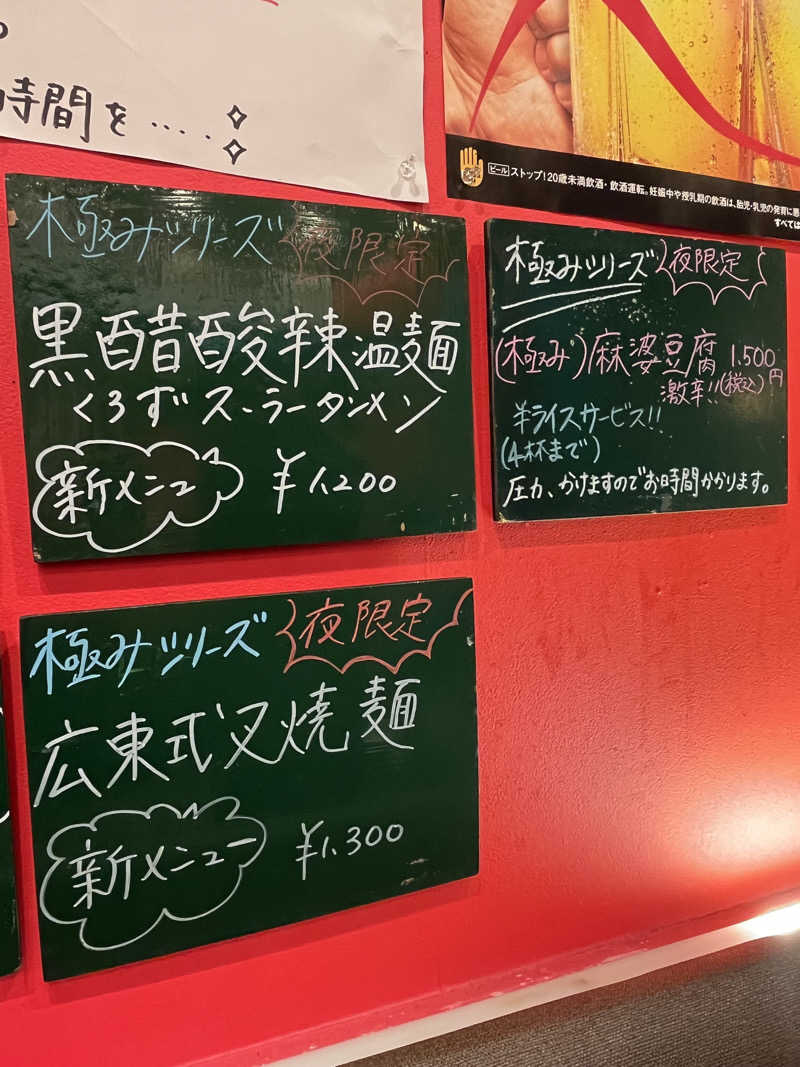 時間を‥‥
ビール ストップ！20歳未満飲酒・飲酒運転。妊娠中や授乳期の飲酒は、胎児・乳児の発育に悪
すべては
極みシリーズ 夜限定
黒酢酸辣温麺
くろずスーラータンメン
新メニュー ¥1,200
極みシリーズ 夜限定
(極み)麻婆豆腐 1,500円
激辛!!(税込)
半ライスサービス!!
(4杯まで)
圧力、かけますのでお時間かかります。
極みシリーズ 夜限定
広東式叉焼麺
新メニュー ¥1,300